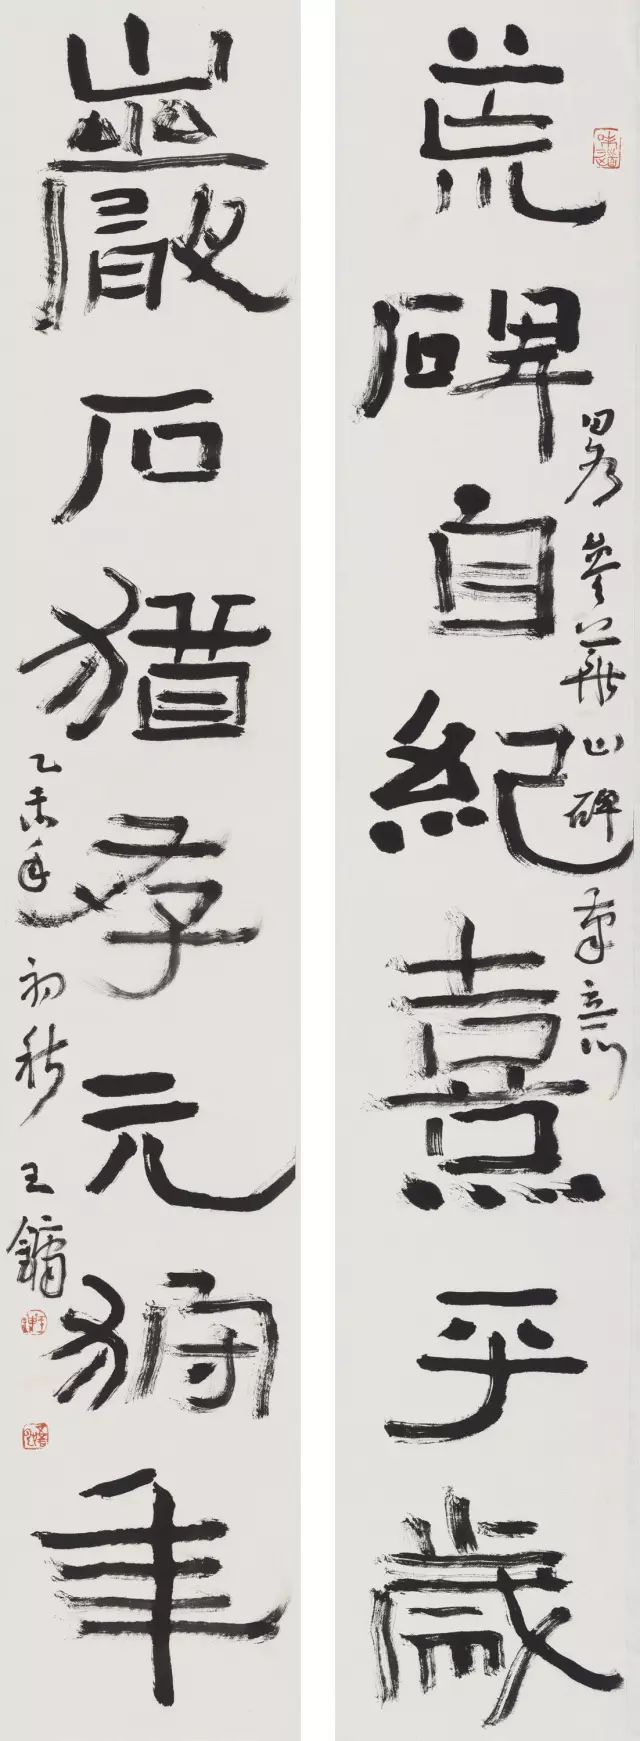 荒碑自紀熹平歲
畧参以華山碑筆意
巖石猶存元狩年
乙未年初秋王鏞